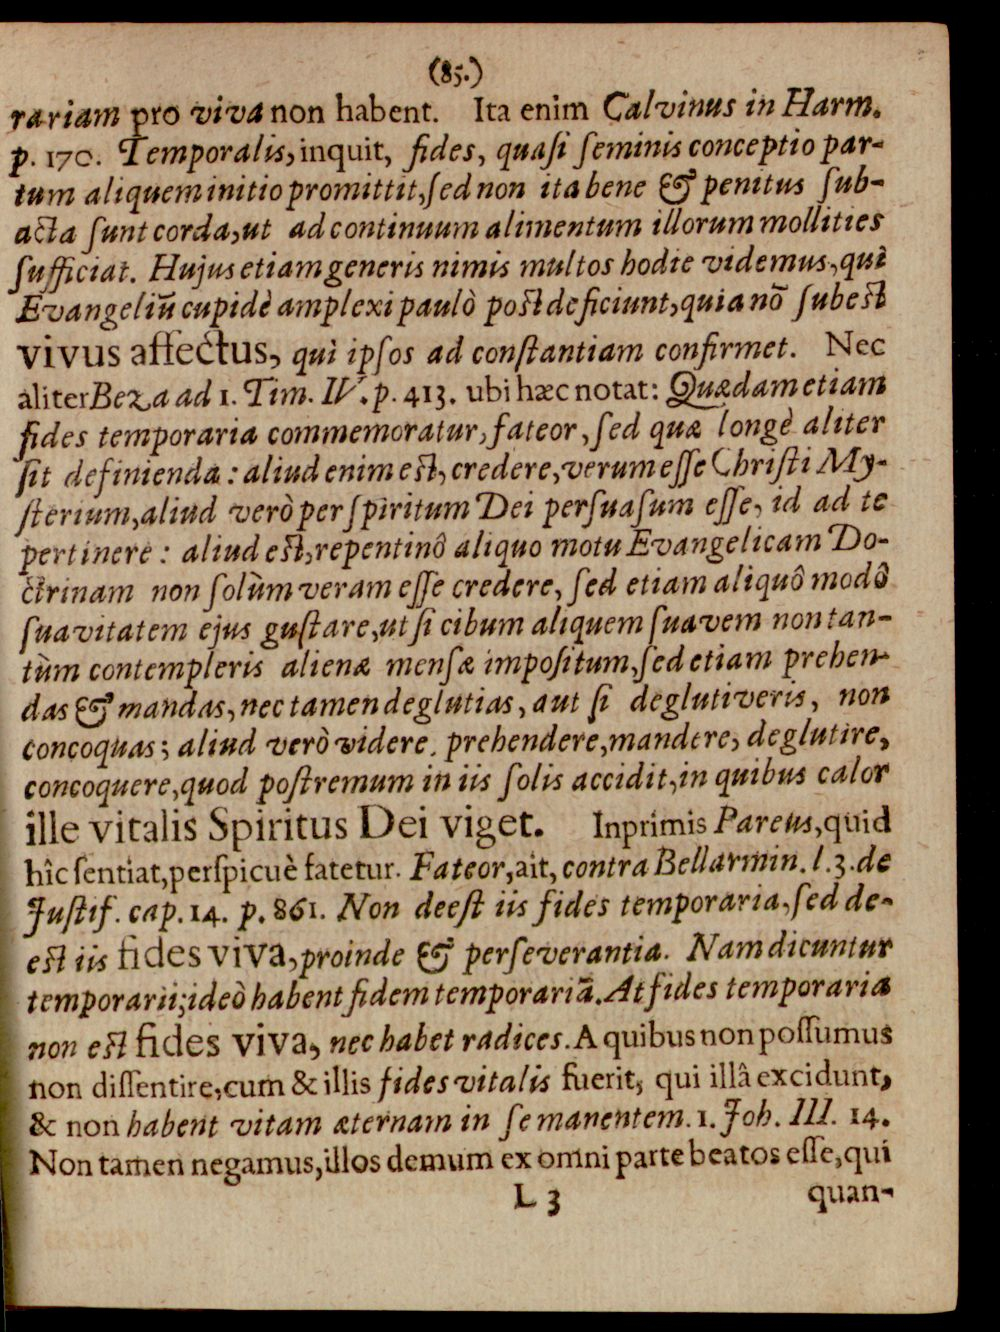 (85.)
rariam pro viva non habent. Ita enim Calvinus in Harm.
p. 170. Temporalis, inquit, fides, quaſi ſeminis conceptio par-
tum aliquem initio promittit, ſed non ita bene & penitus ſub-
acta ſunt corda, ut ad continuum alimentum illorum mollities
ſufficiat. Hujus etiam generis nimis multos hodie videmus, quì
Evangeliũ cupidè amplexi paulò poſt deficiunt, quia nõ ſubeſt
vivus affectus, quì ipſos ad conſtantiam confirmet. Nec
aliter Beza ad 1. Tim. IV. p. 413. ubi hæc notat: Quædam etiam
fides temporaria commemoratur, fateor, ſed quæ longè aliter
ſit definienda: aliud enim eſt, credere, verum eſſe Chriſti My-
ſterium, aliud verò per ſpiritum Dei perſuaſum eſſe, id ad te
pertinere: aliud eſt, repentinô aliquo motu Evangelicam Do-
ctrinam non ſolùm veram eſſe credere, ſed etiam aliquô modô
ſuavitatem ejus guſtare, ut ſi cibum aliquem ſuavem non tan-
tùm contempleris alienæ menſæ impoſitum, ſed etiam prehen-
das & mandas, nec tamen deglutias, aut ſi deglutiveris, non
concoquas; aliud verò videre, prehendere, mandere, deglutire,
concoquere, quod poſtremum in iis ſolis accidit, in quibus calor
ille vitalis Spiritus Dei viget. Inprimis Pareus, quid
hîc ſentiat, perſpicuè fatetur. Fateor, ait, contra Bellarmin. l. 3. de
Juſtif. cap. 14. p. 861. Non deeſt iis fides temporaria, ſed de-
eſt iis fides viva, proinde & perſeverantia. Nam dicuntur
temporarii; ideò habent fidem temporariã. At fides temporaria
non eſt fides viva, nec habet radices. A quibus non poſſumus
non diſſentire, cum & illis fides vitalis fuerit, qui illâ excidunt,
& non habent vitam æternam in ſe manentem. 1. Joh. III. 14.
Non tamen negamus, illos demum ex omni parte beatos eſſe, qui
L 3 quan-